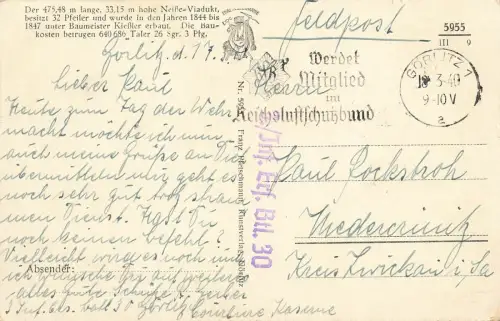 Der 475,48 m lange, 33,15 m hohe Neiße-Viadukt,
besitzt 32 Pfeiler und wurde in den Jahren 1844 bis
1847 unter Baumeister Kießler erbaut. Die Bau-
kosten betrugen 640 686 Taler 26 Sgr. 3 Pfg.
Görlitz d. 17.3.
Lieber Paul
Heute zum Tag der Wehr
macht möchte ich nun
auch meine Grüße an Dich
übermitteln mir geht es
noch sehr gut trotz stram
men Dienst. Hast Du
noch keinen befehl?
Vielleicht wird es noch und
ich wünsche Dir auf weiteres
alles gute Schütze
Absender:
3 Inf. Ers. batl 30 Görlitz
Courbiere Kaserne
Nr. 5955 Franz Kunstverlag, Görlitz
Inf. Erf. Btl. 30
Feldpost
5955
III 9
Werdet
Mitglied
im
Reichsluftschutzbund
GÖRLITZ 1
18 3-40
9-10 V
a
Herrn
Paul Rockstroh
Niedercrinitz
Kreis Zwickau i/Sa